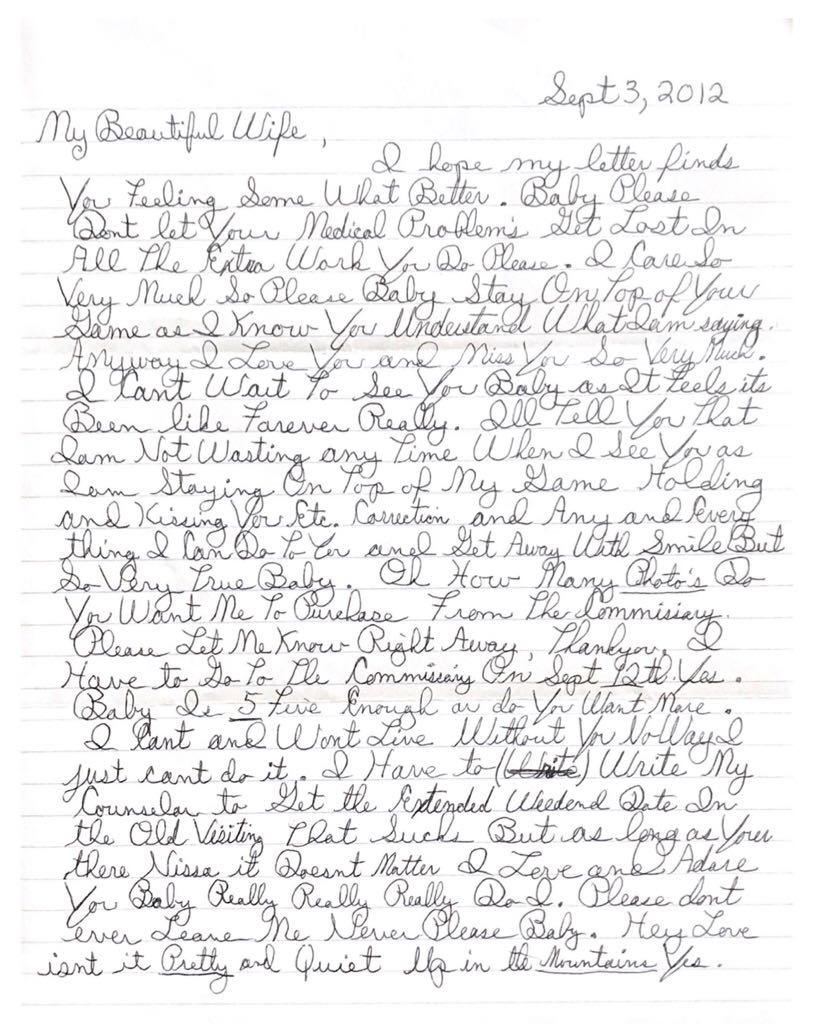 Sept 3, 2012
My Beautiful Wife,
I hope my letter finds
You Feeling Some What Better. Baby Please
Dont let Your Medical Problem's Get Lost In
All The Extra Work You Do Please. I Care So
Very Much So Please Baby Stay On Top of Your
Game as I Know You Understand What Iam saying.
Anyway I Love You and Miss You So Very Much.
I Cant Wait To See You Baby as It Feels its
Been like Farever Really. Ill Tell You That
Iam Not Wasting any Time When I See You as
Iam Staying On Top of My Game Holding
and Kissing You Etc. Correction and Any and Every
thing I Can Do To You and Get Away With Smile But
So Very True Baby. Oh How Many Photo's Do
You Want Me To Purchase From The Commisiary.
Please Let Me Know Right Away, Thankyou. I
Have to Go To The Commissiary On Sept 12th. Yes.
Baby Is 5 Five Enough or do You Want More.
I Cant and Wont Live Without You No Way I
just cant do it. I Have to (Write) Write My
Counselor to Get the Extended Weedend Date In
the Old Visiting That Sucks But as long as Your
there Nissa it Doesnt Matter I Love and Adare
You Baby Really Really Really Do I. Please dont
ever Leave Me Never Please Baby. Hey Love
isnt it Pretty and Quiet Up in the Mountains Yes.